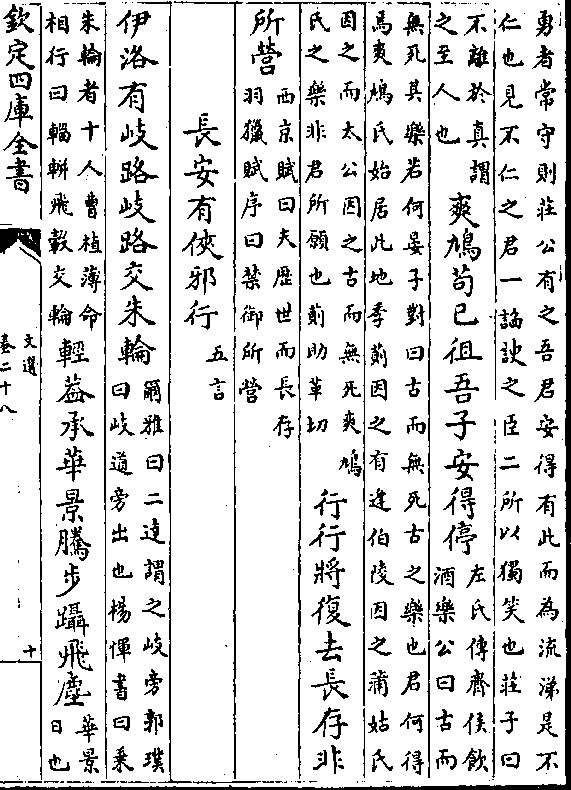 勇者常守則莊公有之吾君安得有此而為流涕是不
仁也見不仁之君一謟諛之臣二所以獨笑也莊子曰
不離於真謂
之至人也
爽鳩苟已徂吾子安得停
左氏傳齊侯飲
酒樂公曰古而
無死其樂若何晏子對曰古而無死古之樂也君何得
焉爽鳩氏始居此地季萴因之有逢伯陵因之蒲姑氏
因之而太公因之古而無死爽鳩
氏之樂非君所願也萴助革切
行行將復去長存非
所營
西京賦曰夫歴世而長存
羽獵賦序曰禁御所營
長安有俠邪行
五言
伊洛有岐路岐路交朱輪
爾雅曰二達謂之岐旁郭璞
曰岐道旁出也楊惲書曰乘
朱輪者十人曹植薄命
相行曰輜軿飛轂交輪
輕葢承華景騰步躡飛塵
華景
日也
欽定四庫全書
文選
卷二十八
十